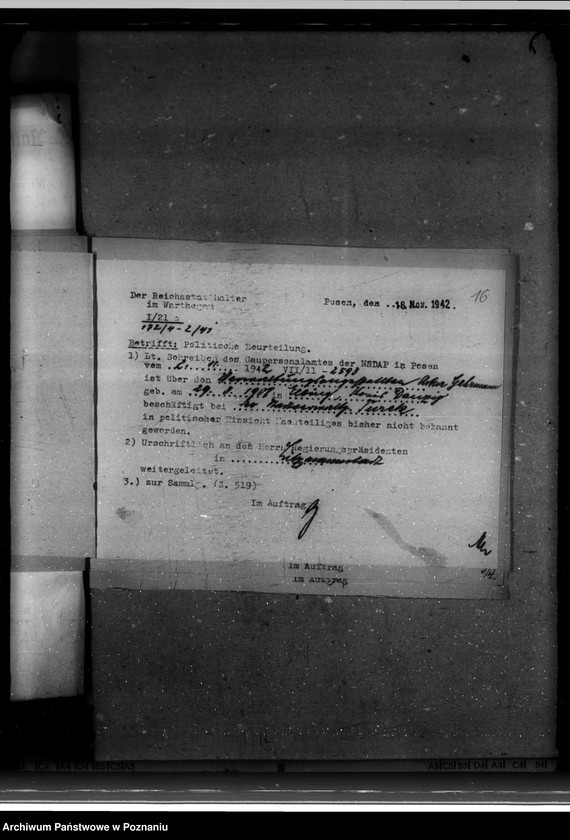 16
Der Reichsstatthalter
im Warthegau
I/21
Posen, den ..18. Nov. 1942.
Betrifft: Politische Beurteilung.
1) Lt. Schreiben des Gaupersonalamtes der NSDAP in Posen
vom 2. 11. 1942 VII/11 -
ist über den Verwaltungsangestellten
geb. am 29. 1908 in Danzig
beschäftigt bei Turek
in politischer Hinsicht Nachteiliges bisher nicht bekannt
geworden.
2) Urschriftlich an den Herrn Regierungspräsidenten
in Litzmannstadt
weitergeleitet.
3.) zur Samml. (Z. 519)
Im Auftrag
Im Auftrag
Im Auftrag
Archiwum Państwowe w Poznaniu